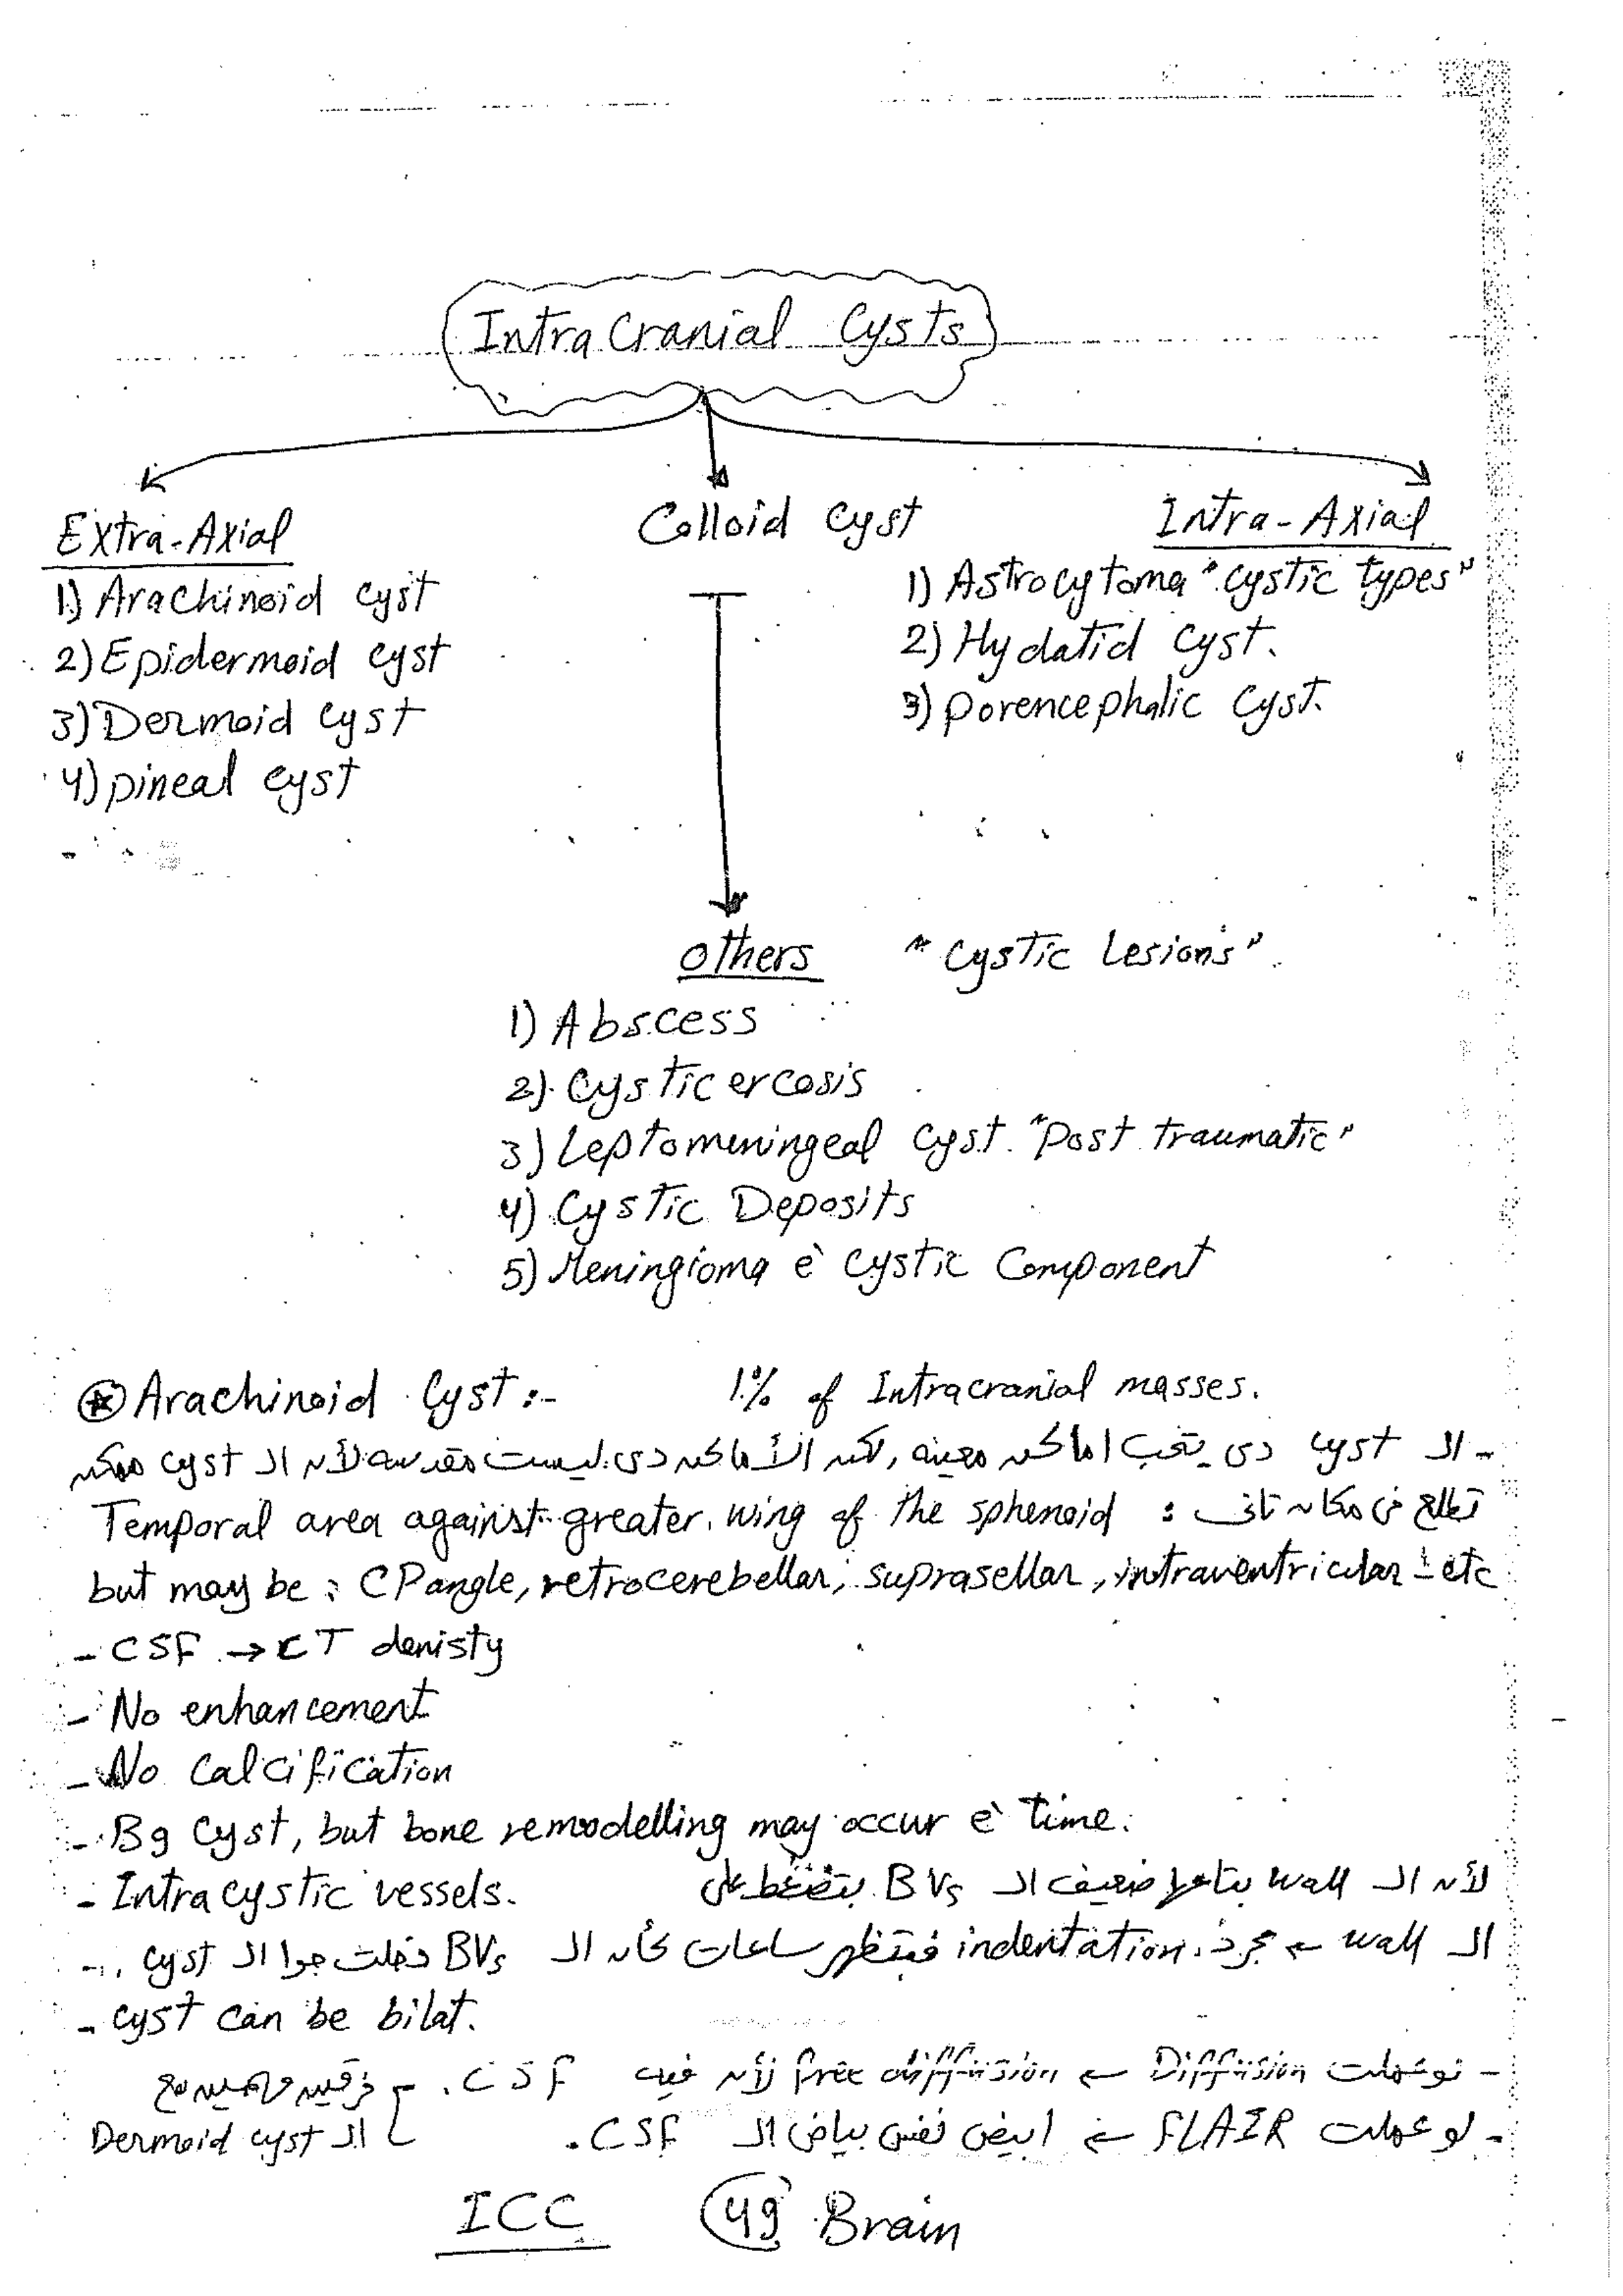 IntraCranial Cysts
Extra-Axial
1) Arachinoid cyst
2) Epidermoid cyst
3) Dermoid cyst
4) pineal cyst
Colloid cyst
Intra-Axial
1) Astrocytoma "cystic types"
2) Hydatid cyst.
3) porencephalic cyst.
others "Cystic Lesions".
1) Abscess
2) Cysticercosis
3) Leptomeningeal Cyst. "Post traumatic"
4) Cystic Deposits
5) Meningioma è Cystic Component
Arachinoid Cyst:- 1% of Intracranial masses.
- الـ cyst دى بتحب اماكن معينه, لكن الأماكن دى ليست مقدسه لأن الـ cyst ممكن
تطلع فى مكان تانى : Temporal area against greater wing of the sphenoid
but may be : CPangle, retrocerebellar, suprasellar, intraventricular - etc
- CSF → CT denisty
- No enhancement
- No Calcification
- Bg Cyst, but bone remodelling may occur è time.
- Intracystic vessels. لأن الـ wall بتاعها ضعيف الـ BVs بتضغط على
الـ wall ← مجرد indentation. فبتظهر ساعات كأن الـ BVs دخلت جوا الـ cyst.
- cyst can be bilat.
- لو عملت Diffusion ← free diffusion لأن فيه CSF.
- لو عملت FLAIR ← ابيض نفس بياض الـ CSF.
فرقين مهمين مع
الـ Dermoid cyst
ICC 49 Brain